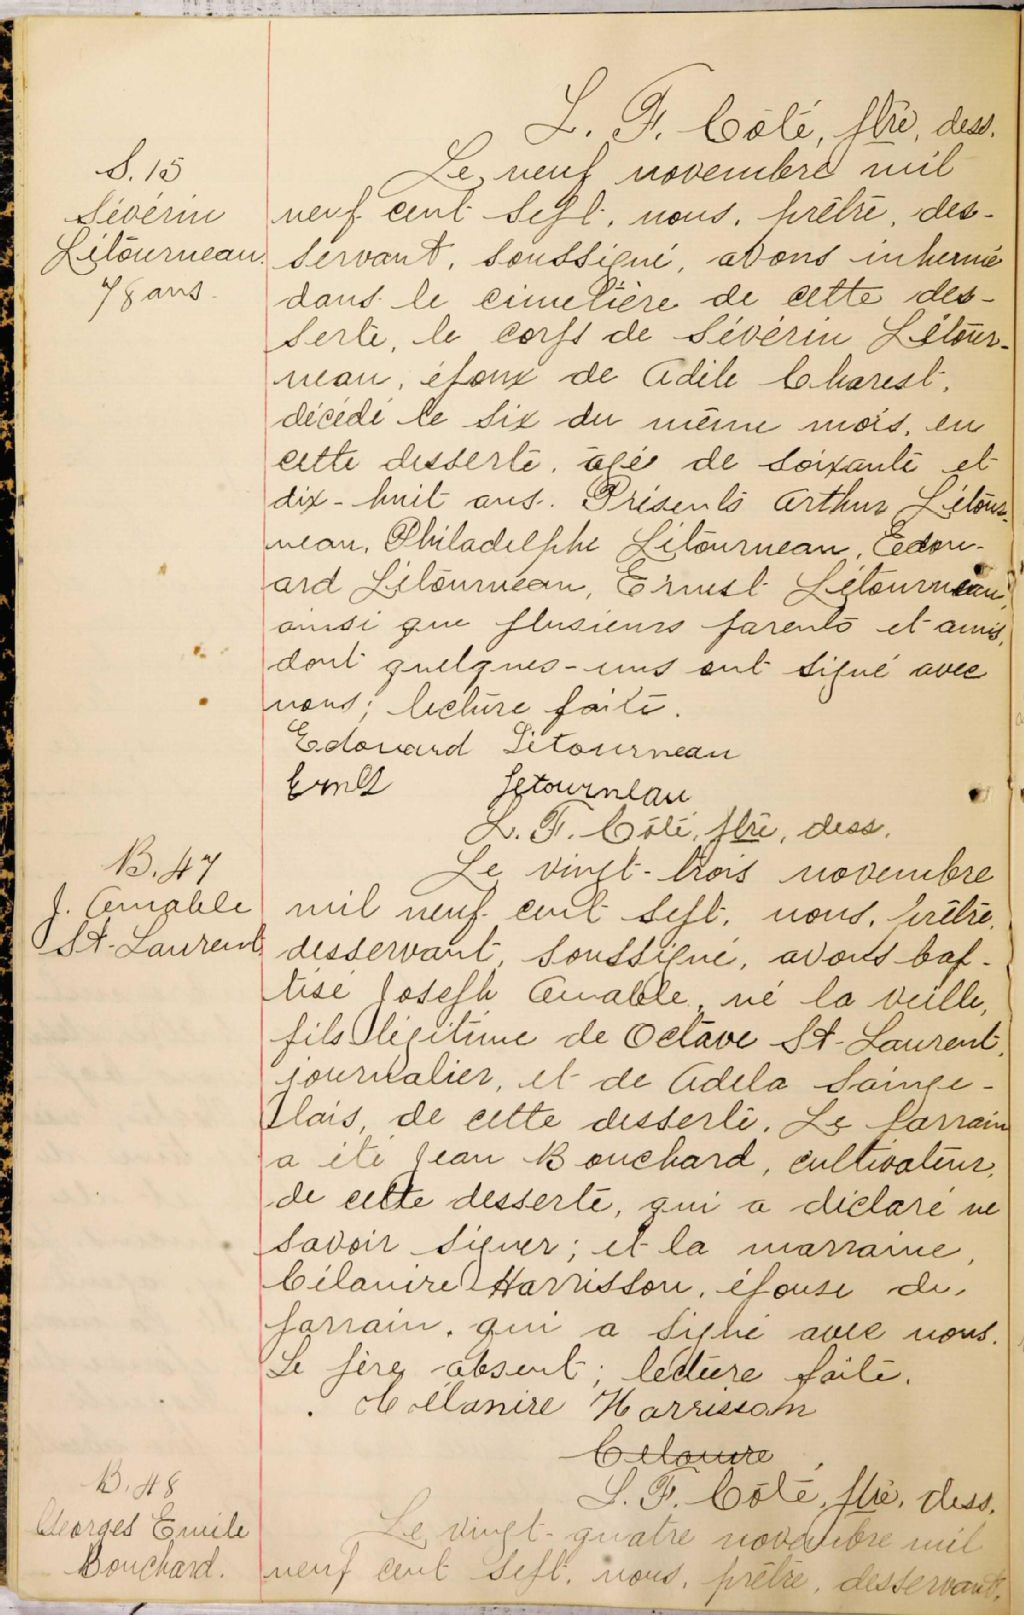 L. F. Côté, ptre, dess.
S. 15
Sévérin
Létourneau.
78 ans.
Le neuf novembre mil
neuf cent sept, nous, prêtre, des-
servant, soussigné, avons inhumé
dans le cimetière de cette des-
serte, le corps de Sévérin Létour-
neau, époux de Adile Charest,
décédé le six du même mois, en
cette desserte, âgé de soixante et
dix-huit ans. Présents Arthur Létour-
neau, Philadelphe Létourneau, Edou-
ard Létourneau, Ernest Létourneau,
ainsi que plusieurs parents et amis,
dont quelques-uns ont signé avec
nous; lecture faite.
Edouard Létourneau
Ernest Letourneau
L. F. Côté, ptre, dess.
B. 47
J. Amable
St-Laurent
Le vingt-trois novembre
mil neuf cent sept, nous, prêtre,
desservant, soussigné, avons bap-
tisé Joseph Amable, né la veille,
fils légitime de Octave St-Laurent,
journalier, et de Adela Sainge-
lais, de cette desserte. Le parrain
a été Jean Bouchard, cultivateur,
de cette desserte, qui a déclaré ne
savoir signer; et la marraine,
Célanire Harrisson, épouse du
parrain, qui a signé avec nous.
Le père absent; lecture faite.
Célanire Harrisson
Celanire
L. F. Côté, ptre, dess.
B. 48
Georges Emile
Bouchard.
Le vingt-quatre novembre mil
neuf cent sept, nous, prêtre, desservant,